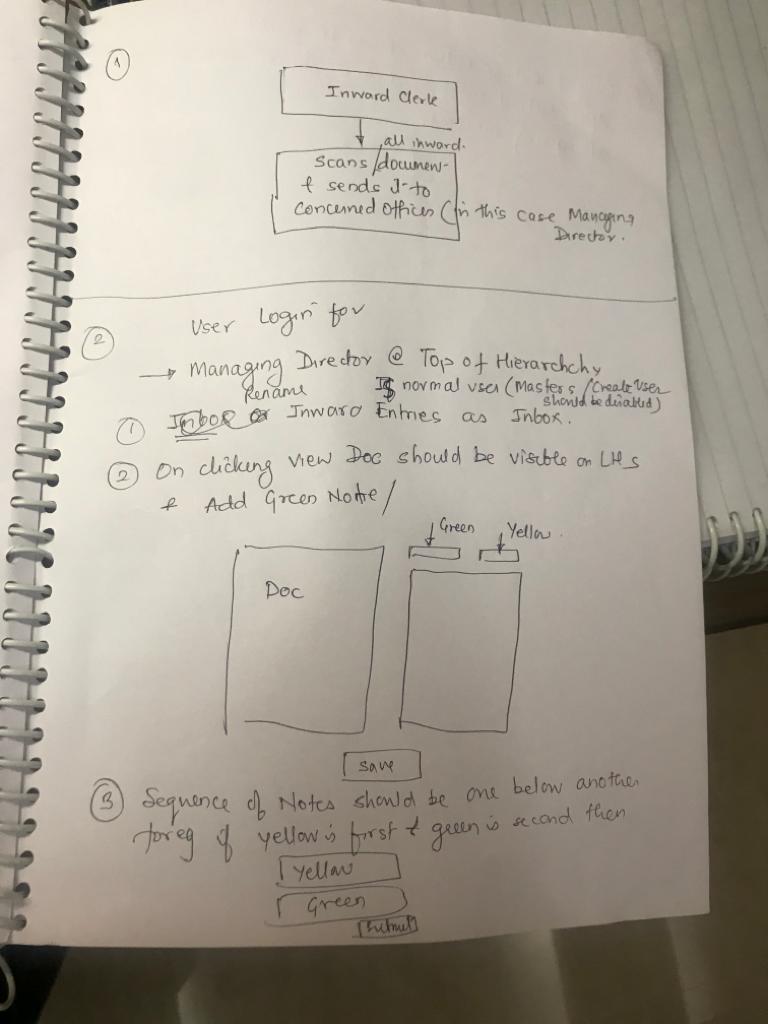 1
Inward Clerk
all inward.
Scans/documen-
& sends it to
Concerned Officer (in this case Managing
Director.
2
User Login for
→ Managing Director @ Top of Hierarchchy
Is normal user (Masters/Create User
should be disabled)
Rename
1 Inbox or Inward Entries as Inbox.
2 On clicking view Doc should be visible on LHS
& Add Green Note/
Green Yellow.
Doc
save
3 Sequence of Notes should be one below another
foreg if yellow is first & green is second then
Yellow
Green
Submit